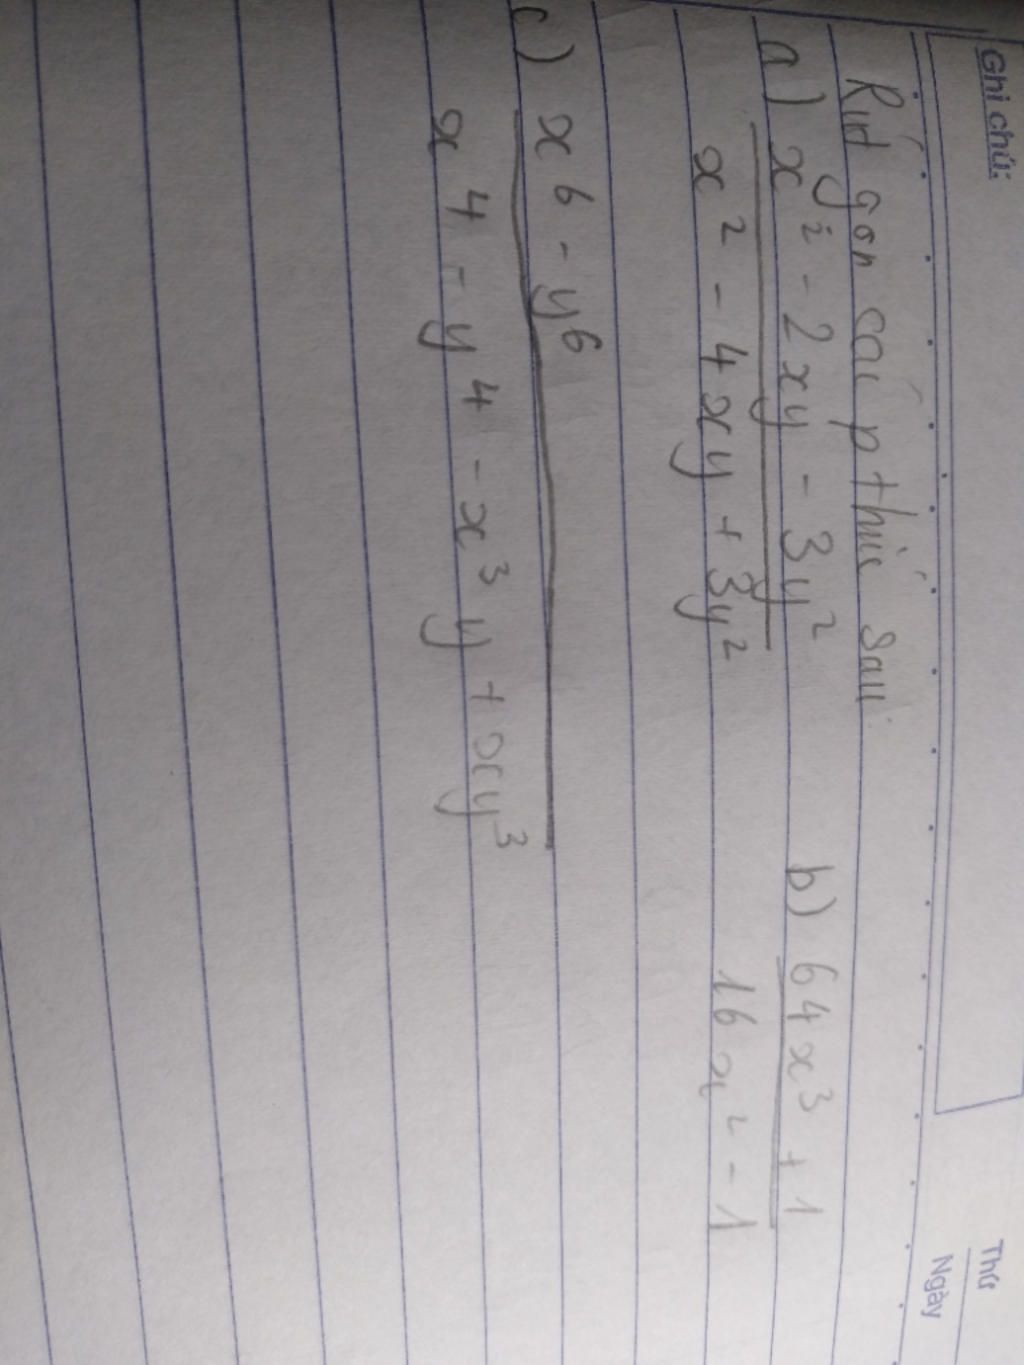 Ghi chú:
Thứ
Ngày
Rút gọn các p thức sau
a) x² - 2xy - 3y²
x² - 4xy + 3y²
b) 64x³ + 1
16x² - 1
c) x⁶ - y⁶
x⁴ - y⁴ - x³y + xy³